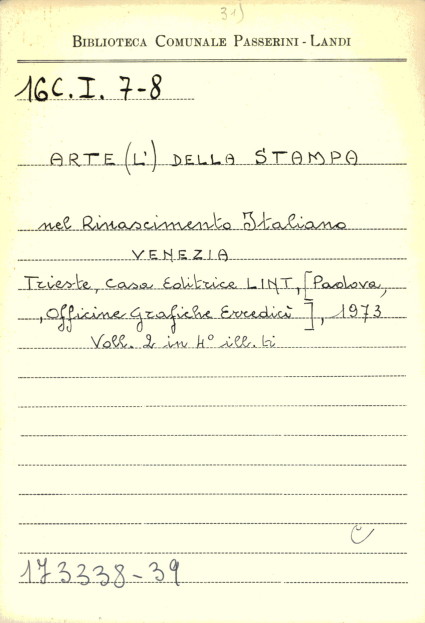 31)
BIBLIOTECA COMUNALE PASSERINI - LANDI
16C.I. 7-8
ARTE (L') DELLA STAMPA
nel Rinascimento Italiano
VENEZIA
Trieste, Casa Editrice LINT, [Padova,
, Officine Grafiche Erredicì], 1973
Voll. 2 in 4° ill. ti
C
173338-39